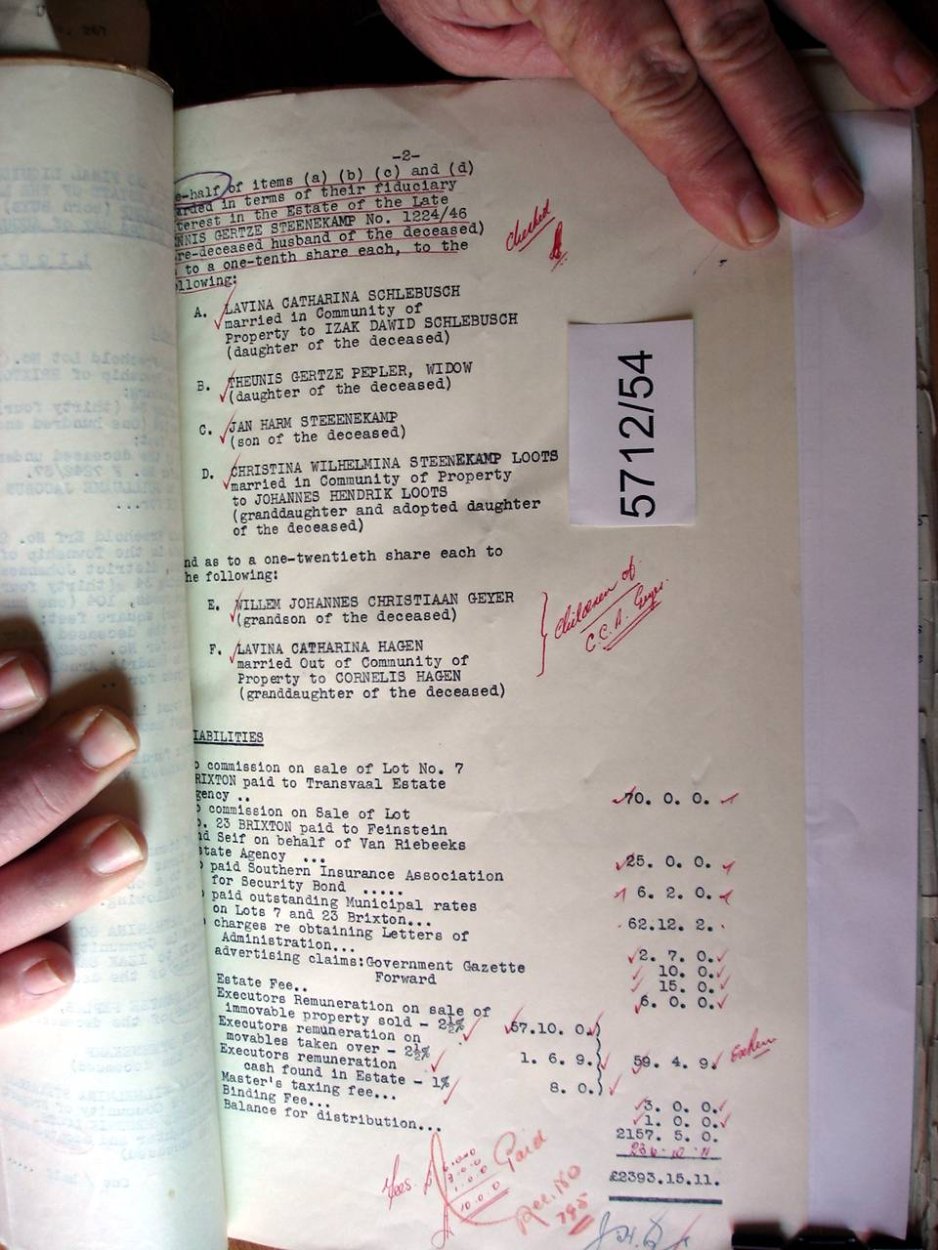 -2-
e-half of items (a) (b) (c) and (d)
arded in terms of their fiduciary
terest in the Estate of the Late
NNIS GERTZE STEENEKAMP No. 1224/46
re-deceased husband of the deceased)
to a one-tenth share each, to the
llowing:
Checked
A. LAVINA CATHARINA SCHLEBUSCH
married in Community of
Property to IZAK DAWID SCHLEBUSCH
(daughter of the deceased)
B. THEUNIS GERTZE PEPLER, WIDOW
(daughter of the deceased)
C. JAN HARM STEEENEKAMP
(son of the deceased)
D. CHRISTINA WILHELMINA STEENEKAMP LOOTS
married in Community of Property
to JOHANNES HENDRIK LOOTS
(granddaughter and adopted daughter
of the deceased)
5712/54
nd as to a one-twentieth share each to
he following:
E. WILLEM JOHANNES CHRISTIAAN GEYER
(grandson of the deceased)
F. LAVINA CATHARINA HAGEN
married Out of Community of
Property to CORNELIS HAGEN
(granddaughter of the deceased)
Children of
C.C.A. Geyer
IABILITIES
commission on sale of Lot No. 7
RIXTON paid to Transvaal Estate
gency .. 70. 0. 0.
commission on Sale of Lot
o. 23 BRIXTON paid to Feinstein
nd Seif on behalf of Van Riebeeks
state Agency ... 25. 0. 0.
paid Southern Insurance Association
for Security Bond ..... 6. 2. 0.
paid outstanding Municipal rates
on Lots 7 and 23 Brixton... 62.12. 2.
charges re obtaining Letters of
Administration... 2. 7. 0.
advertising claims:Government Gazette 10. 0.
Forward 15. 0.
Estate Fee.. 6. 0. 0.
Executors Remuneration on sale of
immovable property sold - 2½% 57.10. 0.
Executors remuneration on
movables taken over - 2½% 1. 6. 9. 59. 4. 9.
Executors remuneration
cash found in Estate - 1% 8. 0.
Master's taxing fee... 3. 0. 0.
Binding Fee... 1. 0. 0.
Balance for distribution... 2157. 5. 0.
236 10 11
£2393.15.11.
Fees
10.0.0
Paid
Rec. 180